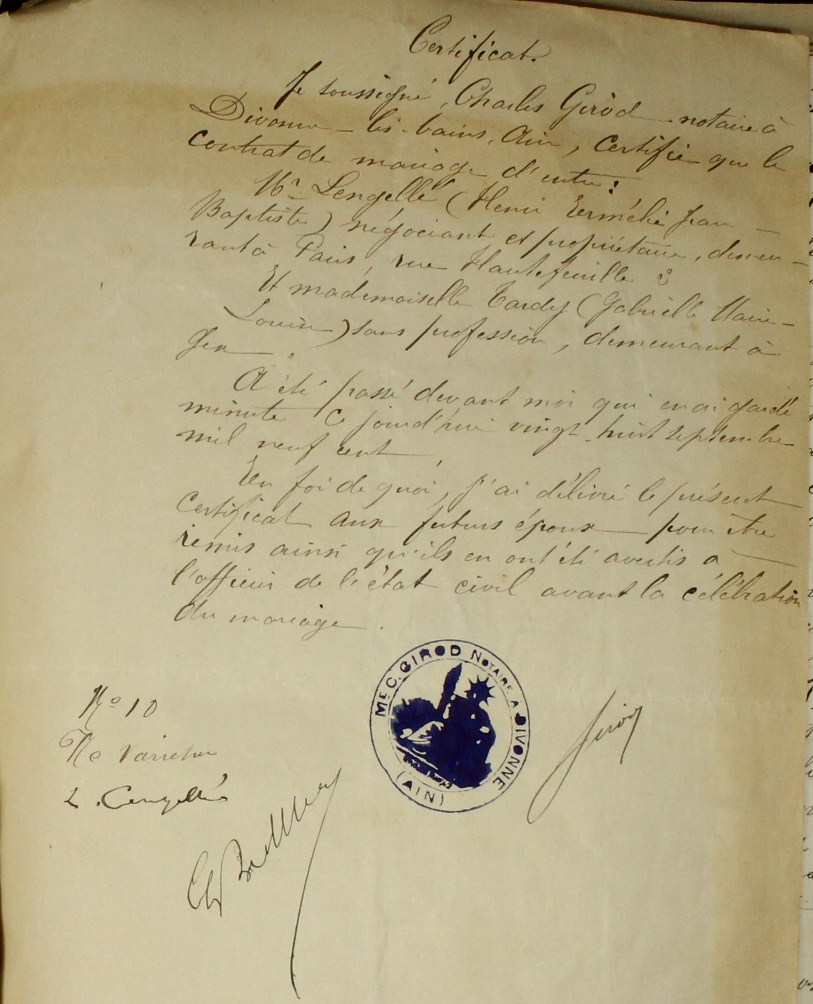 Certificat.
Je soussigné, Charles Girod notaire à
Divonne-les-bains, Ain, certifie que le
contrat de mariage d'entre:
Mr Lengellé (Henri Jean-
Baptiste) négociant et propriétaire, demeu-
rant à Paris, rue Hautefeuille 3
Et mademoiselle Tardy (Gabrielle Marie-
Louise) sans profession, demeurant à
Gex.
A été passé devant moi qui en ai gardé
minute ce jourd'hui vingt-huit septembre
mil neuf cent,
En foi de quoi, j'ai délivré le présent
certificat aux futurs époux pour être
remis ainsi qu'ils en ont été avertis à
l'officier de l'état civil avant la célébration
du mariage.
Me C. GIROD NOTAIRE A DIVONNE
(AIN)
Girod
No 10
Ne varietur
Lengellé